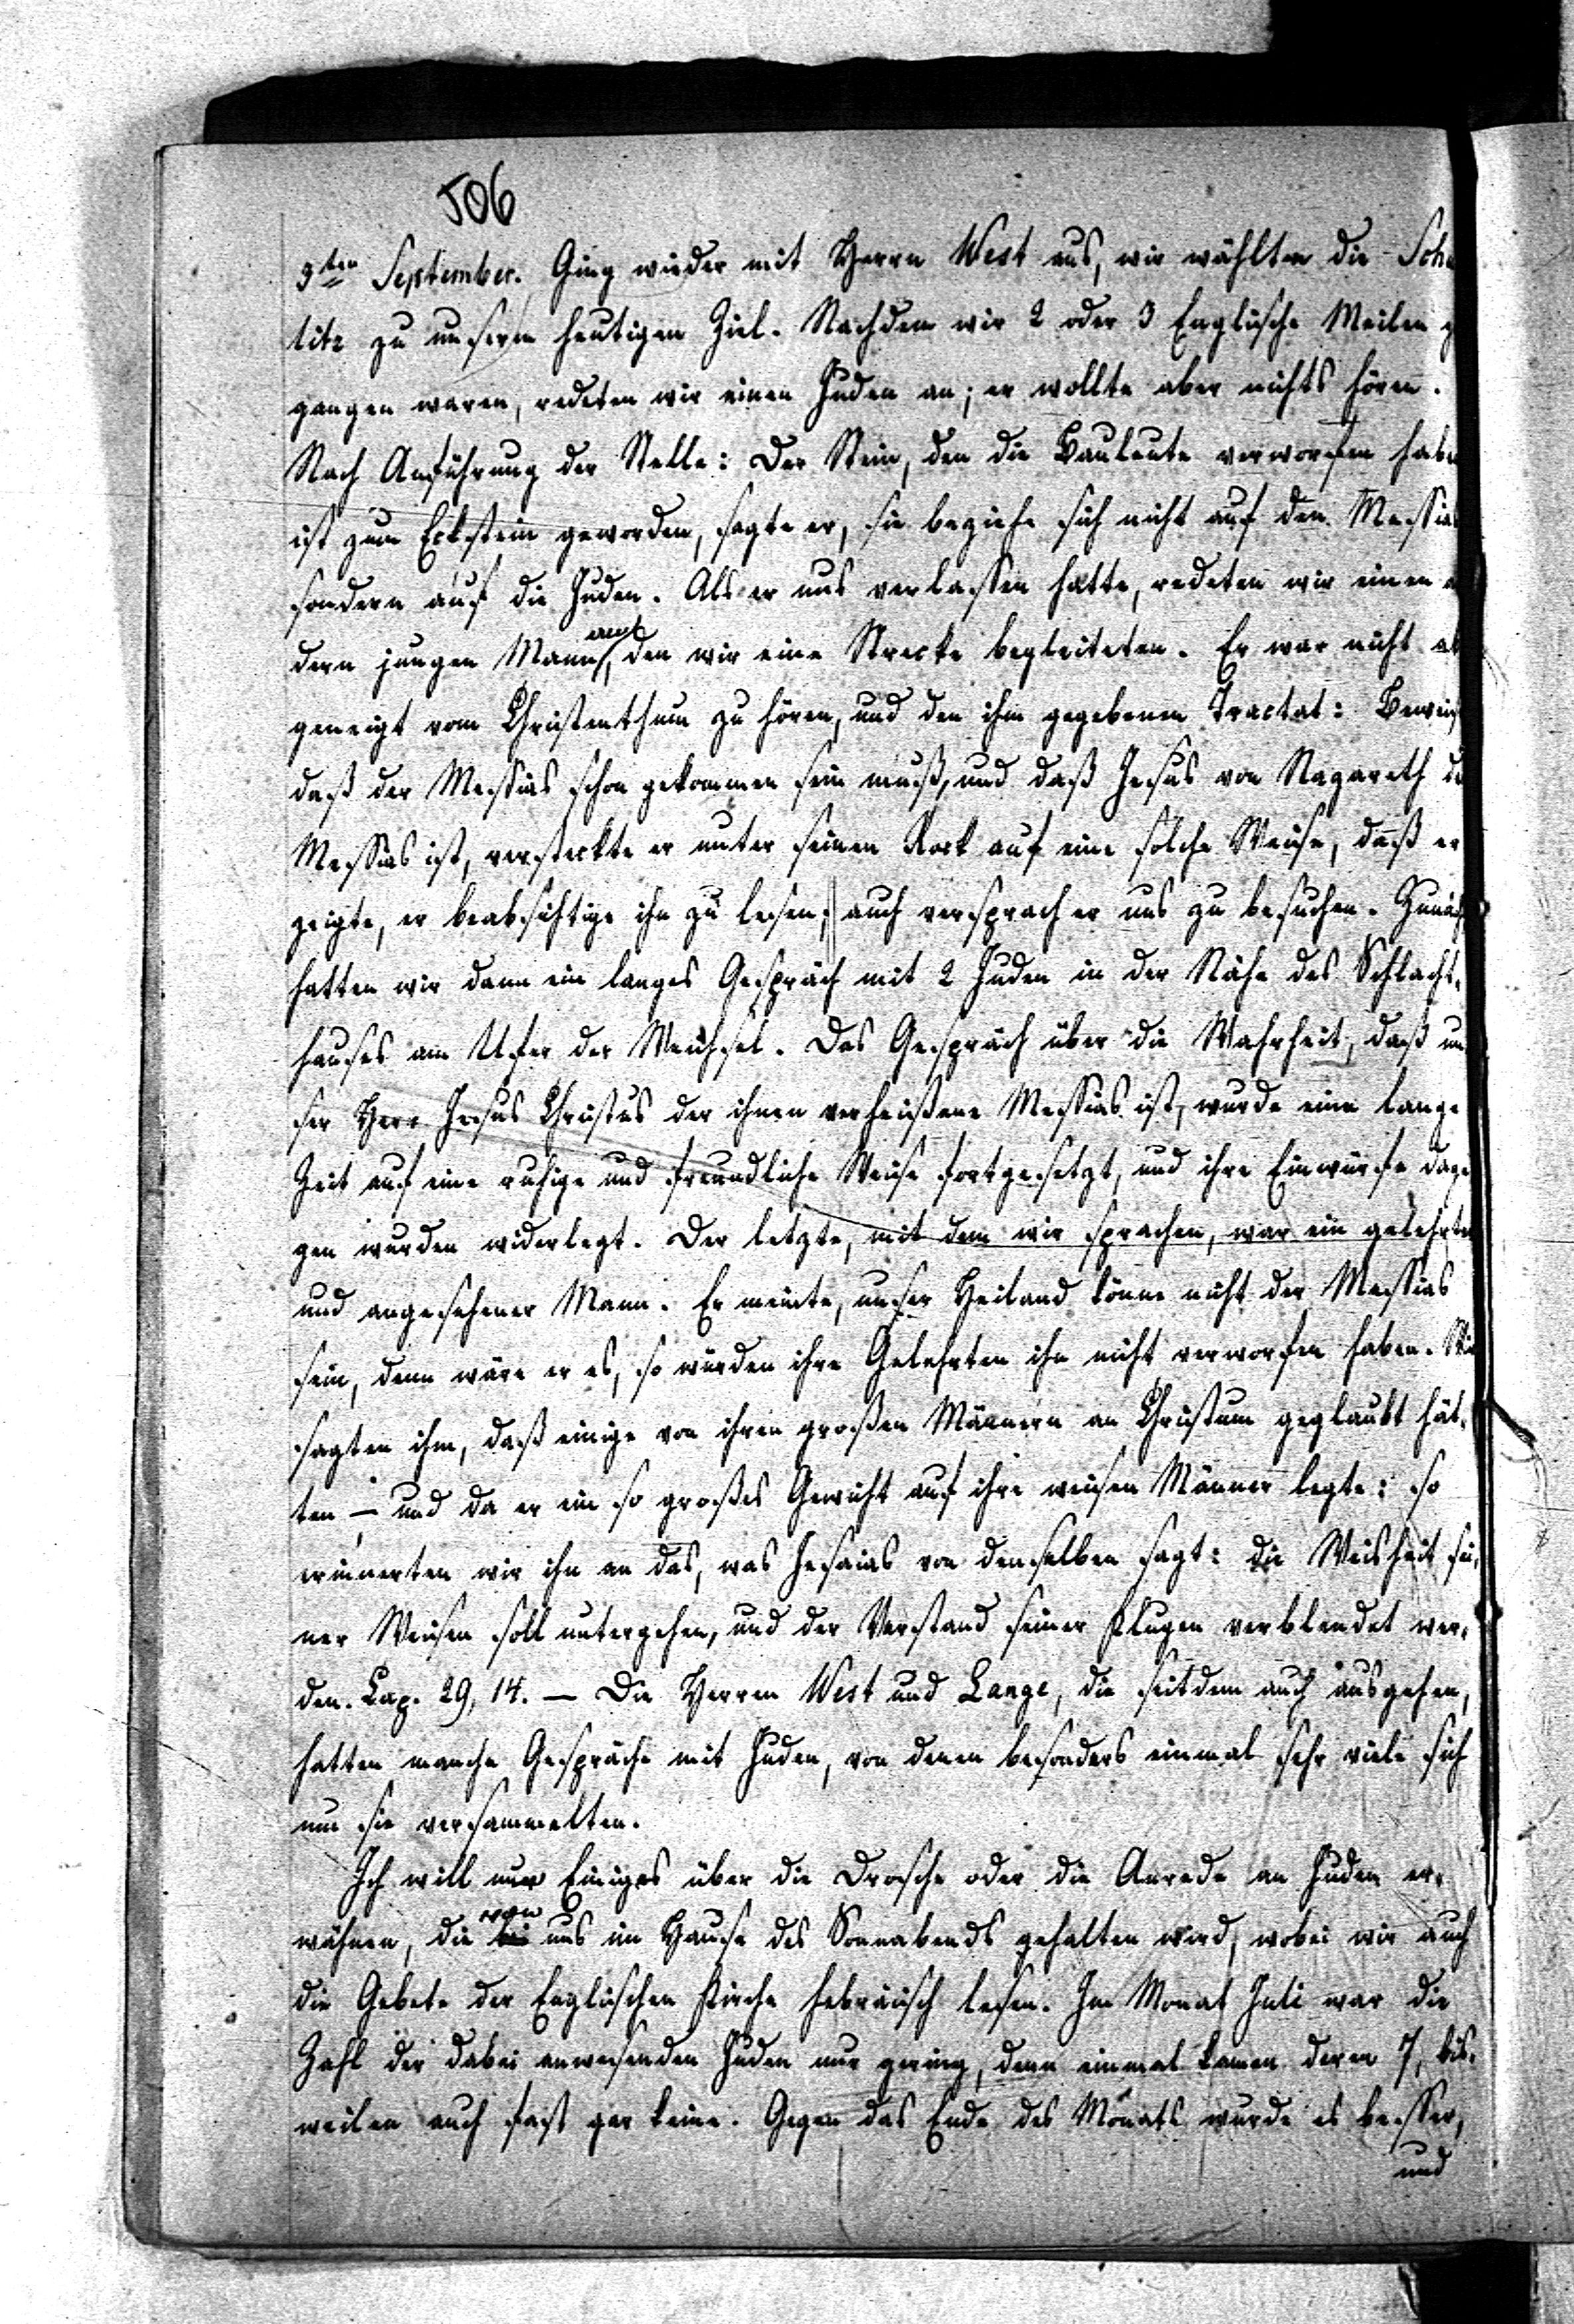 506
3ten September. Ging wieder mit Herrn West aus, wir wählten die Soh
litz zu unserm heutigen Ziel. Nachdem wir 2 oder 3 Englische Meilen g
gangen waren, redeten wir einen Juden an; er wollte aber nichts hören.
Nach Anführung der Stelle: Der Stein, den die Bauleute verworfen haben
ist zum Eckstein geworden, sagte er, sie beziehe sich nicht auf den Messias
sondern auf die Juden. Als er uns verlassen hatte, redeten wir einen an
dern jungen Mann an, den wir eine Strecke begleiteten. Er war nicht ab
geneigt vom Christenthum zu hören, und den ihm gegebenen Tractat: Beweis
daß der Messias schon gekommen sein muß, und daß Jesus von Nazareth de
Messias ist, versteckte er unter seinen Rock auf eine solche Weise, daß er
zeigte, er beabsichtige ihn zu lesen; auch versprach er uns zu besuchen. Zunächst
hatten wir dann ein langes Gespräch mit 2 Juden in der Nähe des Schlacht-
hauses am Ufer der Weichsel. Das Gespräch über die Wahrheit, daß un
ser Herr Jesus Christus der ihnen verheißene Messias ist, wurde eine lange
Zeit auf eine ruhige und freundliche Weise fortgesetzt, und ihre Einwürfe dage
gen wurden widerlegt. Der letzte, mit dem wir sprachen, war ein gelehrter
und angesehener Mann. Er meinte, unser Heiland könne nicht der Messias
sein, denn wäre er es, so würden ihre Gelehrten ihn nicht verworfen haben. Wir
sagten ihm, daß einige von ihren großen Männern an Christum geglaubt hät-
ten, – und da er ein so großes Gewicht auf ihre weisen Männer legte: so
erinnerten wir ihn an das, was Jesaias von denselben sagt: die Weisheit sei-
ner Weisen soll untergehen, und der Verstand seiner Klugen verblendet wer-
den. Cap. 29, 14. — Die Herren West und Lange, die seitdem auch ausgehen,
hatten manche Gespräche mit Juden, von denen besonders einmal sehr viele sich
um sie versammelten.
Ich will nur Einiges über die Drosche oder die Anrede an Juden er-
wähnen, die von uns im Hause des Sonnabends gehalten wird, wobei wir auch
die Gebete der Englischen Kirche hebräisch lesen. Im Monat Juli war die
Zahl der dabei anwesenden Juden nur gering, denn einmal kamen deren 7, bis-
weilen auch fast gar keine. Gegen das Ende des Monats wurde es besser,
und